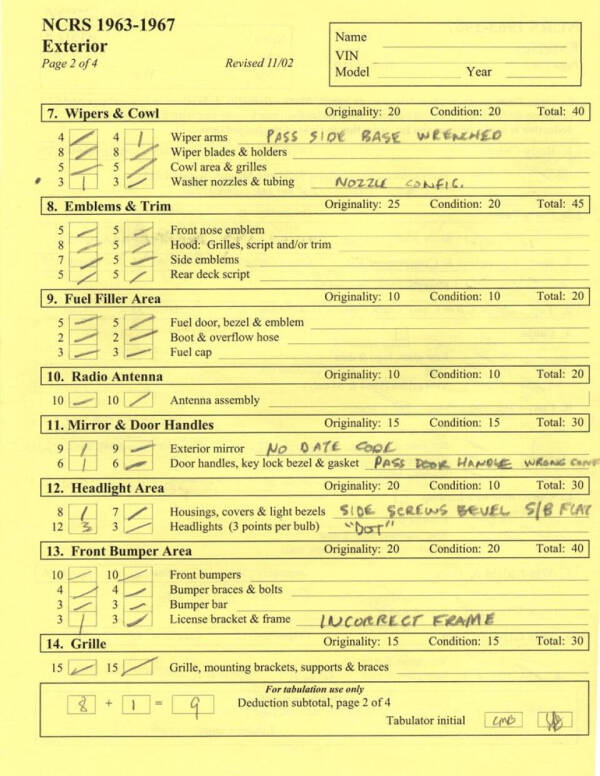 NCRS 1963-1967
Exterior
Page 2 of 4 Revised 11/02
Name
VIN
Model Year
7. Wipers & Cowl Originality: 20 Condition: 20 Total: 40
4 4 1 Wiper arms PASS SIDE BASE WRENCHED
8 8 Wiper blades & holders
5 5 Cowl area & grilles
3 1 3 Washer nozzles & tubing NOZZLE CONFIG.
8. Emblems & Trim Originality: 25 Condition: 20 Total: 45
5 5 Front nose emblem
8 5 Hood: Grilles, script and/or trim
7 5 Side emblems
5 5 Rear deck script
9. Fuel Filler Area Originality: 10 Condition: 10 Total: 20
5 5 Fuel door, bezel & emblem
2 2 Boot & overflow hose
3 3 Fuel cap
10. Radio Antenna Originality: 10 Condition: 10 Total: 20
10 10 Antenna assembly
11. Mirror & Door Handles Originality: 15 Condition: 15 Total: 30
9 1 9 Exterior mirror NO DATE CODE
6 1 6 Door handles, key lock bezel & gasket PASS DOOR HANDLE WRONG CONF
12. Headlight Area Originality: 20 Condition: 10 Total: 30
8 1 7 Housings, covers & light bezels SIDE SCREWS BEVEL S/B FLAT
12 3 3 Headlights (3 points per bulb) "DOT"
13. Front Bumper Area Originality: 20 Condition: 20 Total: 40
10 10 Front bumpers
4 4 Bumper braces & bolts
3 3 Bumper bar
3 1 3 License bracket & frame INCORRECT FRAME
14. Grille Originality: 15 Condition: 15 Total: 30
15 15 Grille, mounting brackets, supports & braces
For tabulation use only
8 + 1 = 9 Deduction subtotal, page 2 of 4
Tabulator initial CMB